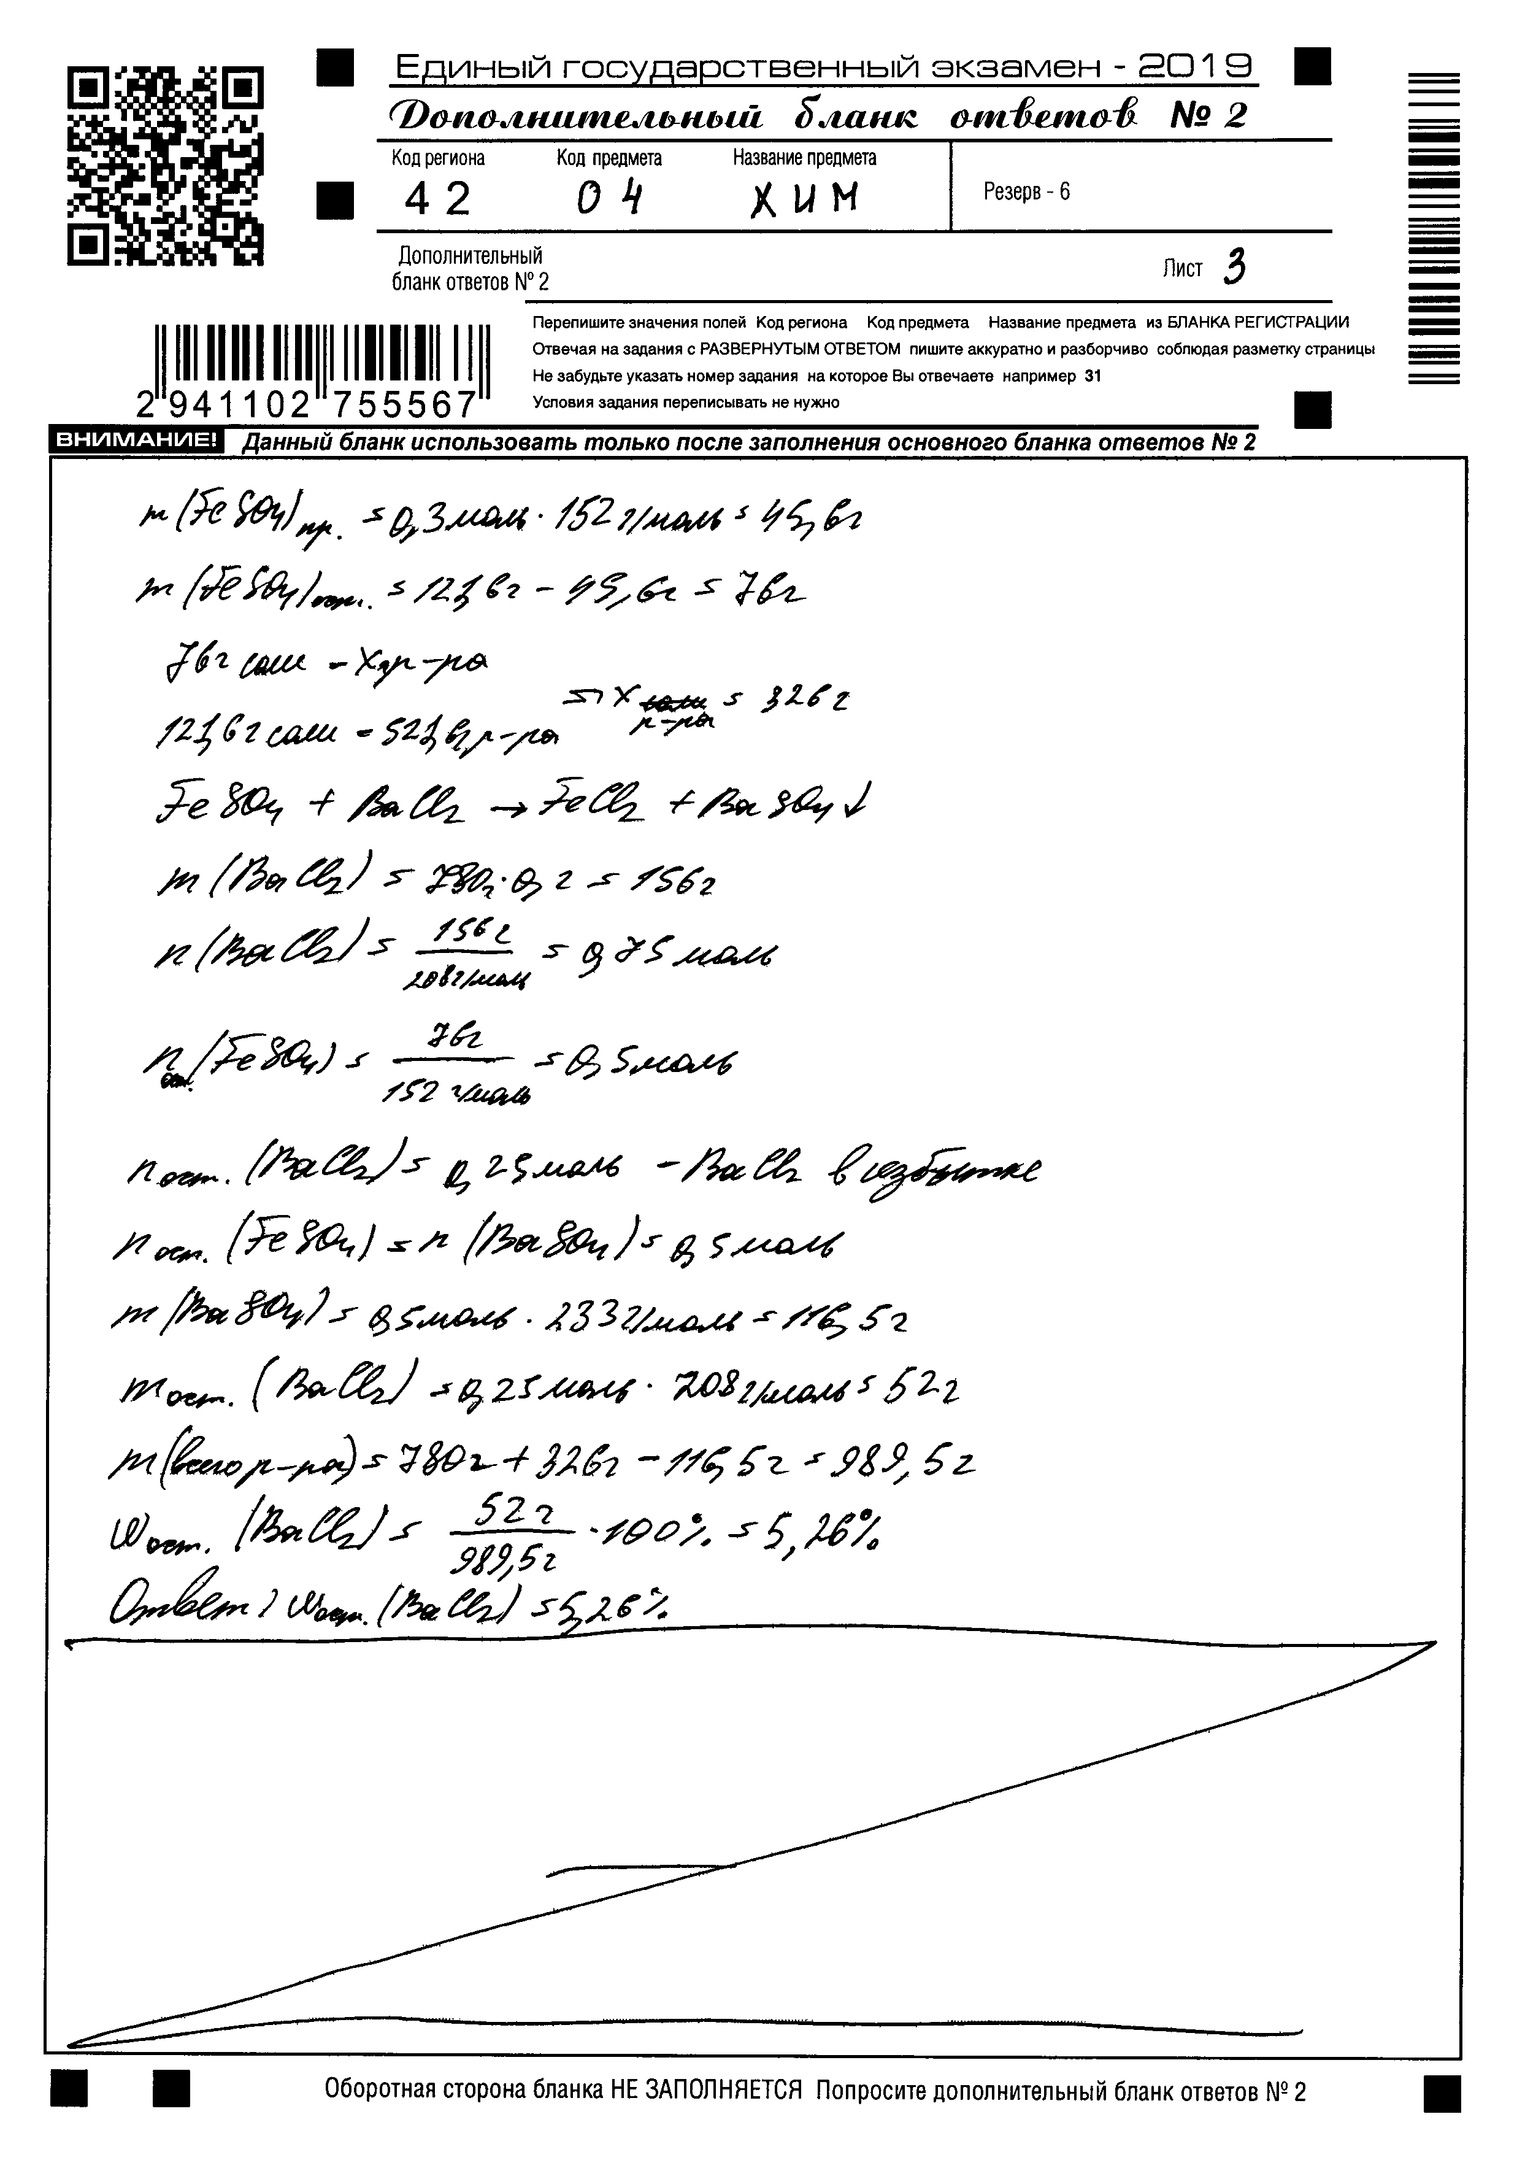 Единый государственный экзамен - 2019
Дополнительный бланк ответов № 2
Код региона Код предмета Название предмета
42 04 ХИМ
Резерв - 6
Дополнительный
бланк ответов № 2
Лист 3
Перепишите значения полей Код региона Код предмета Название предмета из БЛАНКА РЕГИСТРАЦИИ
Отвечая на задания с РАЗВЕРНУТЫМ ОТВЕТОМ пишите аккуратно и разборчиво соблюдая разметку страницы
Не забудьте указать номер задания на которое Вы отвечаете например 31
Условия задания переписывать не нужно
2 941102 755567
ВНИМАНИЕ! Данный бланк использовать только после заполнения основного бланка ответов № 2
m(FeSO4)пр. = 0,3моль · 152 г/моль = 45,6г
m(FeSO4)ост. = 121,6г - 45,6г = 76г
76г соли - Xг р-ра
=> X р-ра = 326г
121,6г соли - 521,6г р-ра
FeSO4 + BaCl2 → FeCl2 + BaSO4↓
m(BaCl2) = 780г · 0,2 = 156г
n(BaCl2) = 156г / 208г/моль = 0,75 моль
nост.(FeSO4) = 76г / 152 г/моль = 0,5моль
nост.(BaCl2) = 0,25моль - BaCl2 в избытке
nост.(FeSO4) = n(BaSO4) = 0,5моль
m(BaSO4) = 0,5моль · 233г/моль = 116,5г
mост.(BaCl2) = 0,25моль · 208г/моль = 52г
m(всего р-ра) = 780г + 326г - 116,5г = 989,5г
Wост.(BaCl2) = 52г / 989,5г · 100% = 5,26%
Ответ: Wост.(BaCl2) = 5,26%
Оборотная сторона бланка НЕ ЗАПОЛНЯЕТСЯ Попросите дополнительный бланк ответов № 2